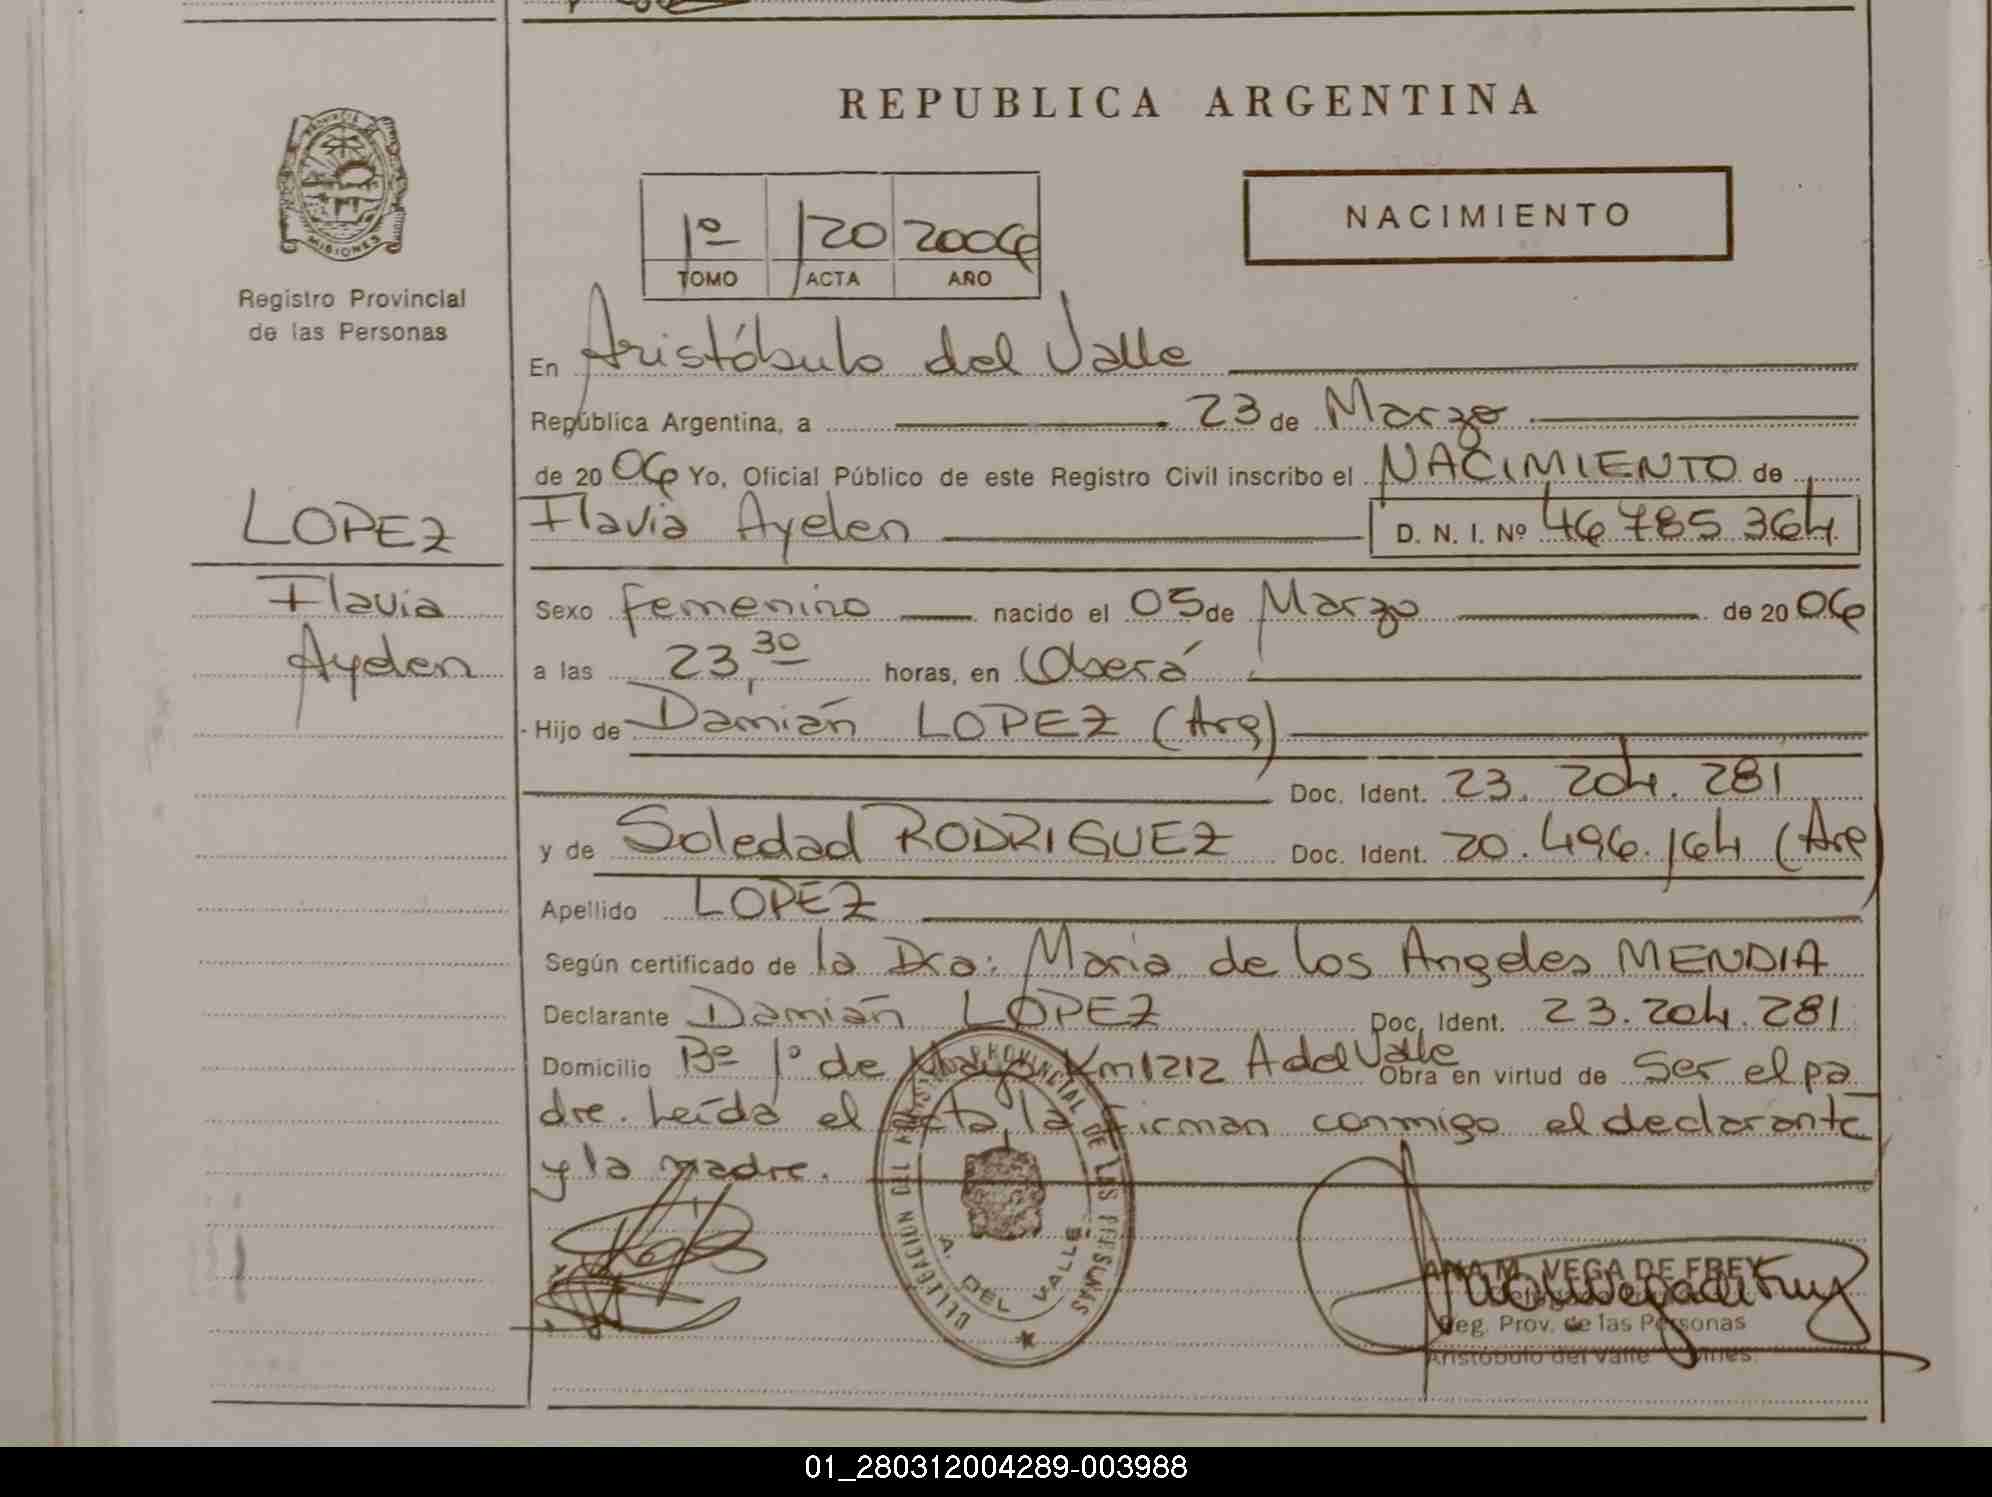 REPUBLICA ARGENTINA
PROVINCIA DE
MISIONES
Registro Provincial
de las Personas
1º 120 2006
TOMO ACTA AÑO
NACIMIENTO
En Aristóbulo del Valle
República Argentina, a 23 de Marzo
de 2006 Yo, Oficial Público de este Registro Civil inscribo el NACIMIENTO de
LOPEZ
Flavia Ayelen D. N. I. Nº 46 785 364
Flavia
Sexo femenino nacido el 05 de Marzo de 2006
Ayelen
a las 23,30 horas, en Oberá
Hijo de Damián LOPEZ (Arg)
Doc. Ident. 23. 204. 281
y de Soledad RODRIGUEZ Doc. Ident. 20. 496. 164 (Arg
Apellido LOPEZ
Según certificado de la Dra: Maria de los Angeles MENDIA
Declarante Damián LOPEZ Doc. Ident. 23. 204. 281
Domicilio Bº 1º de Mayo Km1212 A del Valle Obra en virtud de Ser el pa
dre. Leída el acta, la firman conmigo el declarante
y la madre.
DELEGACION DEL REGISTRO PROVINCIAL DE LAS PERSONAS
A. DEL VALLE
ANA M. VEGA DE FREY
Reg. Prov. de las Personas
Aristóbulo del Valle
01_280312004289-003988